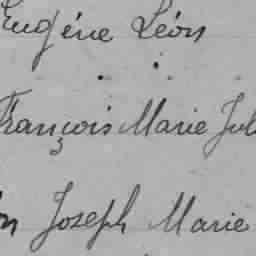 Eugéne Léon
François Marie Jul
on Joseph Marie